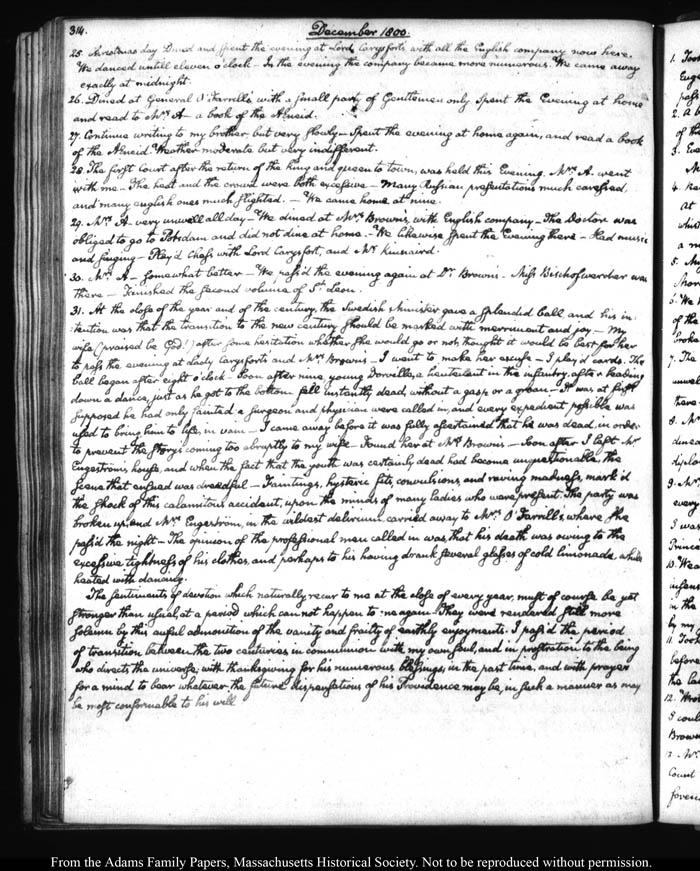 314.
December 1800.
25. Christmas day Dined and spent the evening at Lord Carysfort's, with all the English company now here.
We danced untill eleven o'clock — In the evening the company became more numerous. We came away
exactly at midnight.
26. Dined at General O'Farrill's with a small party of Gentlemen only Spent the Evening at home
and read to Mrs. A— a book of the Æneid.
27. Continue writing to my brother but very slowly — Spent the evening at home again, and read a book
of the Æneid. Weather moderate but very indifferent.
28. The first Court after the return of the king and queen to town, was held this Evening. Mrs. A. went
with me — The heat and the crowd were both excessive — Many Russian presentations much caressed,
and many english ones much slighted. — We came home at nine.
29. Mrs. A. very unwell all day — We dined at Mrs. Brown's, with English company — The Doctor was
obliged to go to Potsdam and did not dine at home — We likewise spent the Evening there — Had music
and singing — Play'd Chess with Lord Carysfort, and Mr. Kinnaird.
30. Mrs. A — somewhat better — We pass'd the evening again at Dr. Brown's. Miss Bischofwerder was
there — Finished the second volume of St. Leon.
31. At the close of the year and of the century, the Swedish Minister gave a splendid ball, and his in-
:tention was that the transition to the new century should be marked with merriment and joy — My
wife (praised be God!) after some hesitation whether she would go or not, thought it would be best for her
to pass the evening at Lady Carysfort's and Mrs. Brown's — I went to make her excuse — I play'd cards. The
ball began after eight o'clock Soon after nine, young Dorville, a lieutenant in the infantry, after leading
down a dance, just as he got to the bottom fell instantly dead, without a gasp or a groan — It was at first
supposed he had only fainted a surgeon and physician were called in, and every expedient possible was
used to bring him to life, in vain — I came away before it was fully ascertained that he was dead, in order
to prevent the story's coming too abruptly to my wife — Found her at Mrs. Brown's — Soon after I left Mr.
Engeström's, house, and when the fact that the youth was certainly dead had become unquestionable, the
scene that ensued was dreadful — Faintings, hysteric fits, convulsions, and raving madness, mark'd
the shock of this calamitous accident, upon the minds of many ladies who were present. The party was
broken up, and Mrs. Engeström, in the wildest delirium, carried away to Mrs. O'Farrill's, where she
pass'd the night — The opinion of the professional men called in was, that his death was owing to the
excessive tightness of his clothes, and perhaps to his having drank several glasses of cold limonade, while
heated with dancing.
The sentiments of devotion which naturally recur to me at the close of every year, must of course be yet
stronger than usual, at a period which can not happen to me again They were rendered still more
solemn by this awful admonition of the vanity and frailty of earthly enjoyments. I pass'd the period
of transition between the two centuries in communion with my own soul, and in prostration to the being
who directs the universe, with thanksgiving for his numerous blessings, in the past time, and with prayer
for a mind to bear whatever the future dispensations of his Providence may be, in such a manner as may
be most conformable to his will
From the Adams Family Papers, Massachusetts Historical Society. Not to be reproduced without permission.